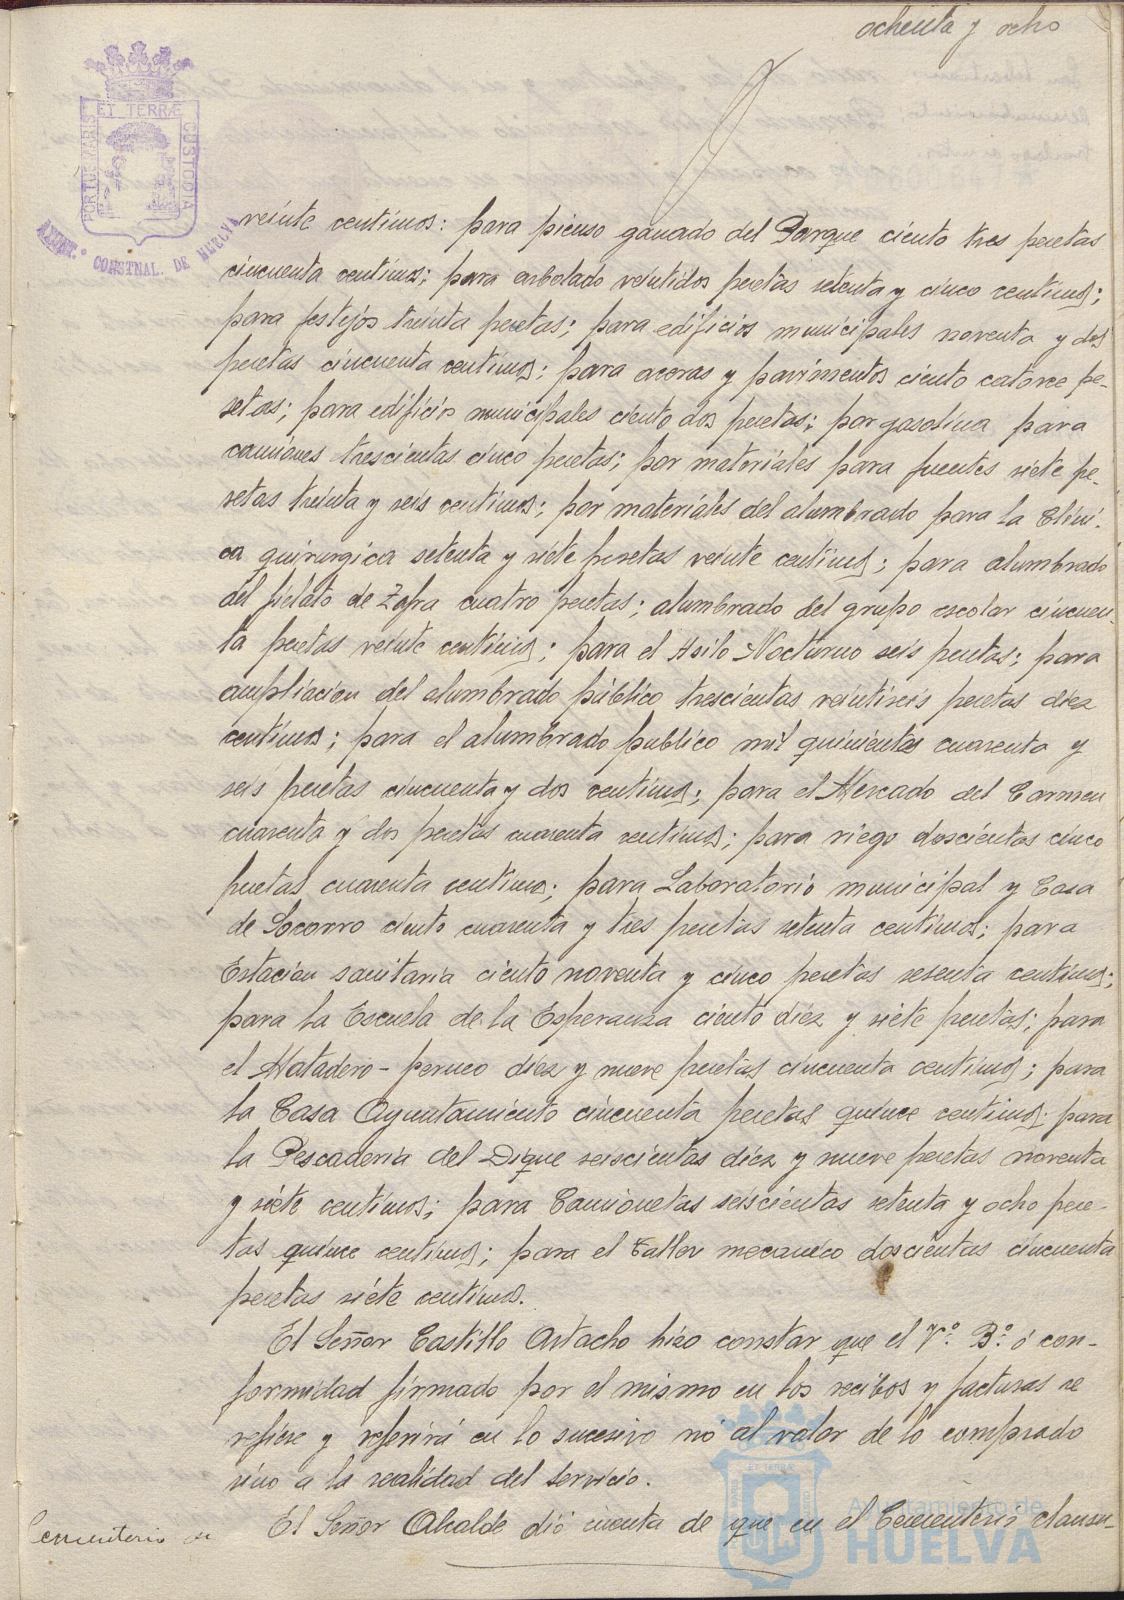 ochenta y ocho
PORTUS MARIS ET TERRÆ CUSTODIA
AYUNT.º CONSTNAL. DE HUELVA
veinte centimos: para pienso ganado del Parque ciento tres pesetas
cincuenta centimos; para arbolado veintidos pesetas setenta y cinco centimos;
para festejos treinta pesetas; para edificios municipales noventa y dos
pesetas cincuenta centimos; para aceras y pavimentos ciento catorce pe-
setas; para edificios municipales ciento dos pesetas; por gasolina para
camiones trescientas cinco pesetas; por materiales para fuentes siete pe-
setas treinta y seis centimos; por materiales del alumbrado para la Clini-
ca quirurgica setenta y siete pesetas veinte centimos; para alumbrado
del fielato de Zafra cuatro pesetas; alumbrado del grupo escolar cincuen-
ta pesetas veinte centimos; para el Asilo Nocturno seis pesetas; para
ampliacion del alumbrado público trescientas veintiseis pesetas diez
centimos; para el alumbrado publico mil quinientas cuarenta y
seis pesetas cincuenta y dos centimos; para el Mercado del Carmen
cuarenta y dos pesetas cuarenta centimos; para riego doscientas cinco
pesetas cuarenta centimos; para Laboratorio municipal y Casa
de Socorro ciento cuarenta y tres pesetas setenta centimos; para
Estacion sanitaria ciento noventa y cinco pesetas sesenta centimos;
para la Escuela de la Esperanza ciento diez y siete pesetas; para
el Matadero - perneo diez y nueve pesetas cincuenta centimos; para
la Casa Ayuntamiento cincuenta pesetas quince centimos; para
la Pescaderia del Dique seiscientas diez y nueve pesetas noventa
y siete centimos; para Camionetas seiscientas setenta y ocho pese-
tas quince centimos; para el taller mecanico doscientas cincuenta
pesetas siete centimos.
El Señor Castillo Artacho hizo constar que el Vº. Bº. ó con-
formidad firmado por el mismo en los recibos y facturas se
refiere y referirá en lo sucesivo no al valor de lo comprado
sino a la realidad del servicio.
Cementerio
El Señor Alcalde dió cuenta de que en el Cementerio clausu-
Ayuntamiento de
HUELVA